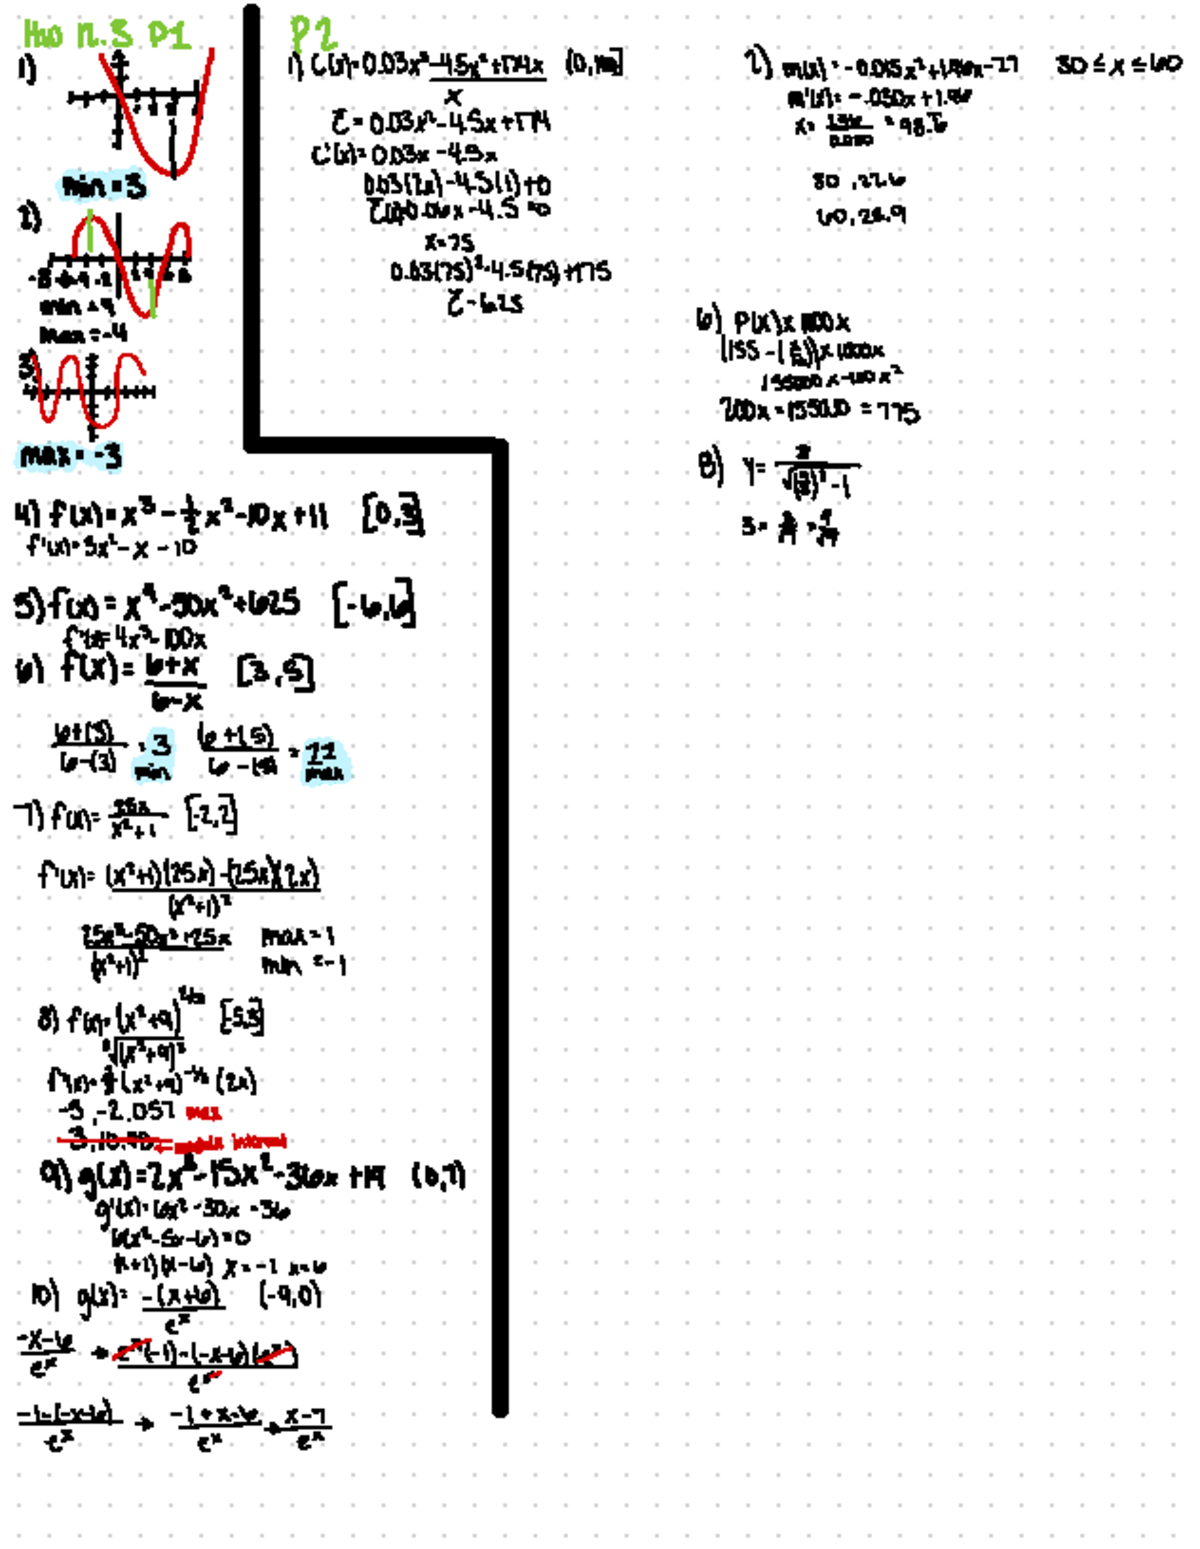 P1
1)
min = 3
2)
-8 -6 -4 -2
min = 4
max = -4
3)
max = -3
4) f(x) = x³ - ½x² - 10x + 11 [0,3]
f'(x) = 3x² - x - 10
5) f(x) = x⁴ - 50x² + 625 [-6,6]
f'(x) = 4x³ - 100x
6) f(x) = 6+x / 6-x [3,5]
6+(3) / 6-(3) = 3 min 6+(5) / 6-(5) = 11 max
7) f(x) = 25x / x²+1 [-2,2]
f'(x) = (x²+1)(25x) - (25x)(2x) / (x²+1)²
25x³-50x²+25x / (x²+1)² max = 1
min = -1
8) f(x) = (x²+9)^2/3 [-5,3]
³√(x²+9)²
f'(x) = ⅔(x²+9)^-1/3 (2x)
-5, -2.057 max
9) g(x) = 2x³ - 15x² - 36x + 19 (0,7)
g'(x) = 6x² - 30x - 36
6(x²-5x-6) = 0
(x+1)(x-6) x = -1 x = 6
10) g(x) = -(x+6) / eˣ (-9,0)
-x-6 / eˣ → eˣ(-1)-(-x-6)(eˣ) / eˣ
-1-(-x-6) / eˣ → -1+x-6 / eˣ → x-7 / eˣ
P2
1) C(x) = 0.03x³-4.5x²+174x / x
C̄ = 0.03x² - 4.5x + 174
C'(x) = 0.03x - 4.5x
0.03(2x) - 4.5(1) + 0
0.06x - 4.5 = 0
x = 75
0.03(75)² - 4.5(75) + 175
C̄ - 6.25
2) m(x) = -0.015x² + 1.46x - 27 30 ≤ x ≤ 60
m'(x) = -.030x + 1.46
x = = 48.6
30, 22.6
60, 26.9
6) P(x) x 1000x
(155 - ) x 1000x
155000x - 100x²
200x = 155000 = 775
8) y =